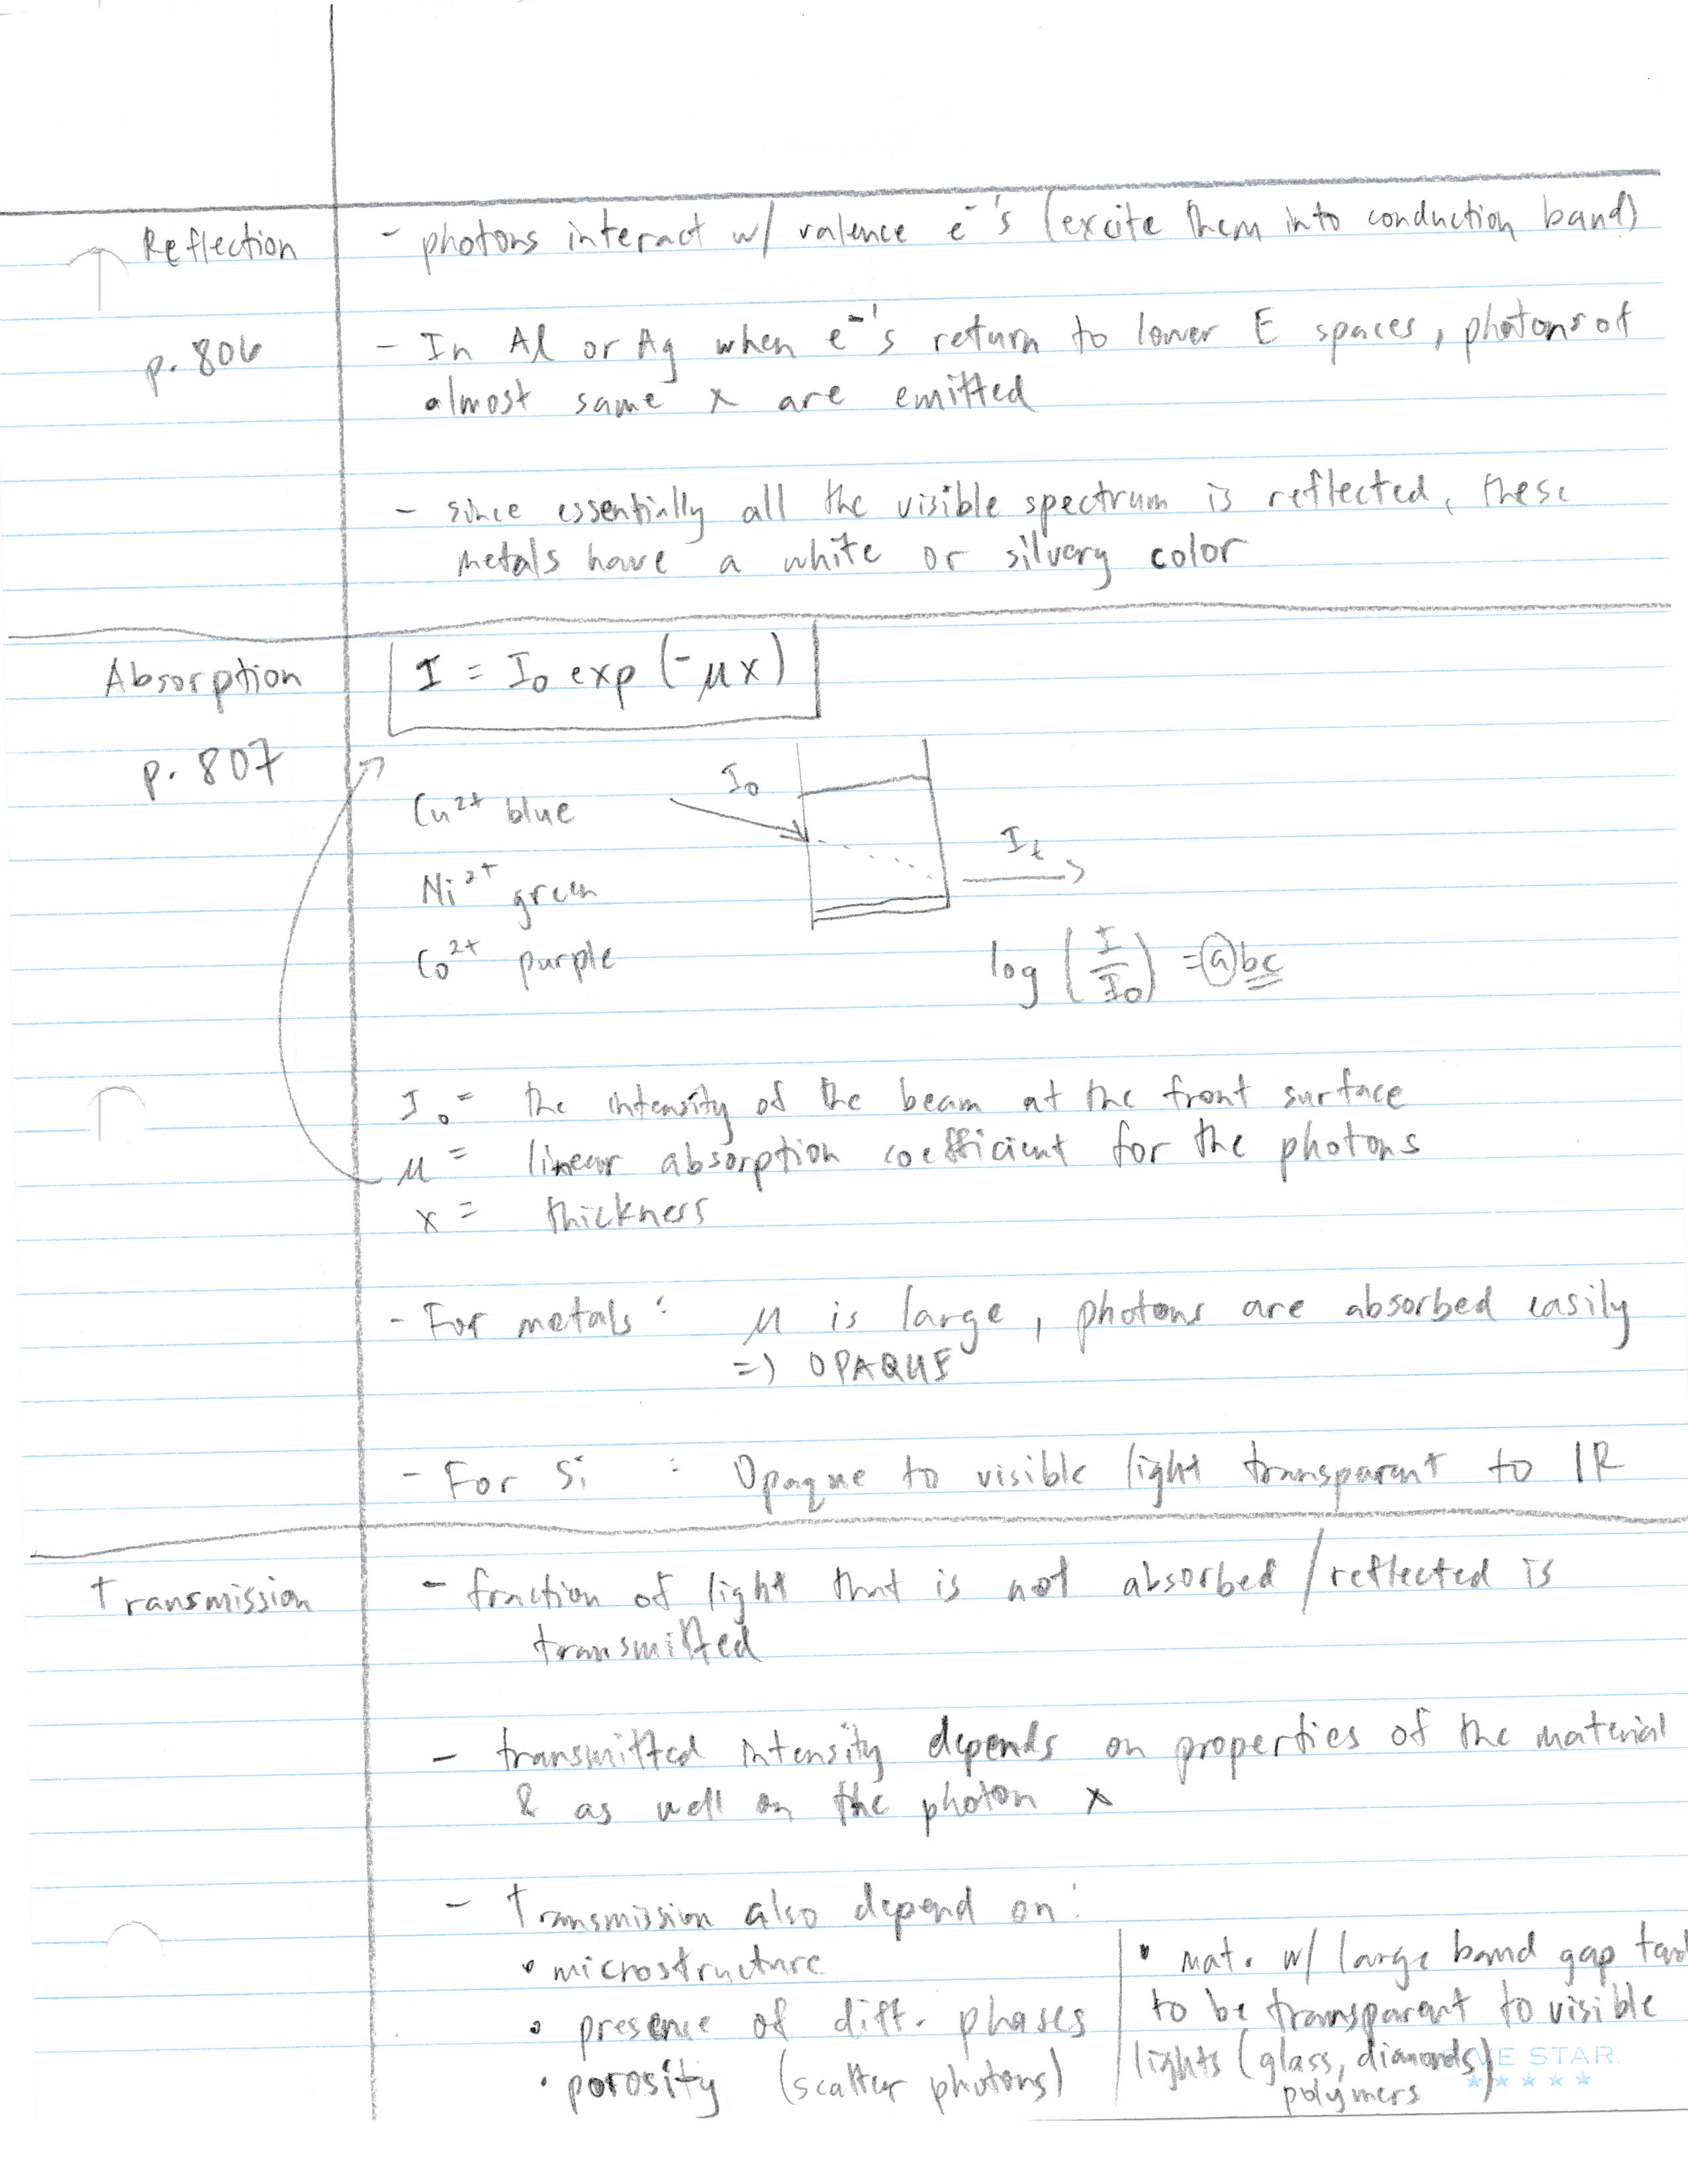 Reflection
- photons interact w/ valence e⁻'s (excite them into conduction band)
p. 806
- In Al or Ag when e⁻'s return to lower E spaces, photons of
almost same λ are emitted
- since essentially all the visible spectrum is reflected, these
metals have a white or silvery color
Absorption
I = I₀ exp (-μx)
p. 807
Cu²⁺ blue
I₀
Iₜ
Ni²⁺ green
Co²⁺ purple
log (I/I₀) = abc
I₀ = the intensity of the beam at the front surface
μ = linear absorption coefficient for the photons
x = thickness
- For metals : μ is large, photons are absorbed easily
=) OPAQUE
- For Si : Opaque to visible light transparent to IR
Transmission
- fraction of light that is not absorbed / reflected is
transmitted
- transmitted intensity depends on properties of the material
& as well on the photon λ
- Transmission also depend on:
• microstructure
• presence of diff. phases
• porosity (scatter photons)
• mat. w/ large band gap tend
to be transparent to visible
lights (glass, diamonds)
polymers
STAR